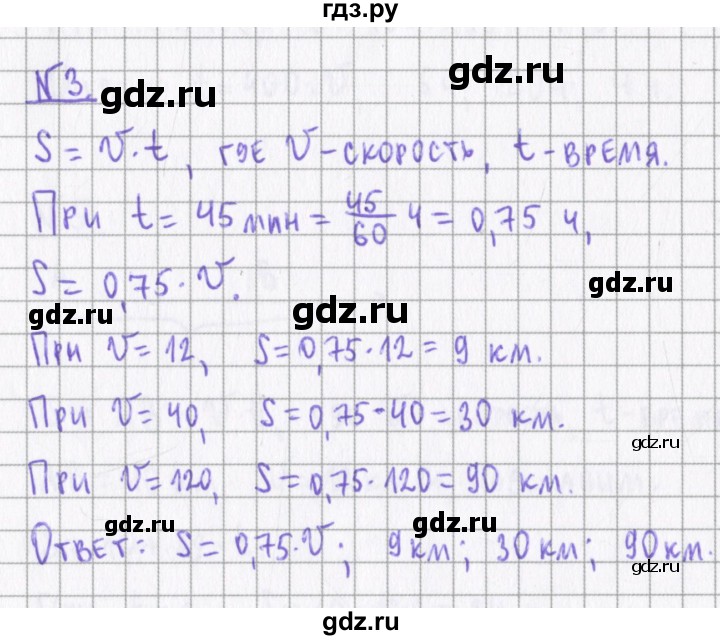 гдз.ру
№3.
gdz.ru
gdz.ru
S = V · t, где V – скорость, t – время.
При t = 45 мин = 45/60 ч = 0,75 ч,
S = 0,75 · V.
gdz.ru
gdz.ru
gdz.ru
При V = 12, S = 0,75 · 12 = 9 км.
При V = 40, S = 0,75 · 40 = 30 км.
gdz.ru
При V = 120, S = 0,75 · 120 = 90 км.
gdz.ru
gdz.ru
Ответ: S = 0,75 · V; 9 км; 30 км; 90 км.
gdz.ru
gdz.ru